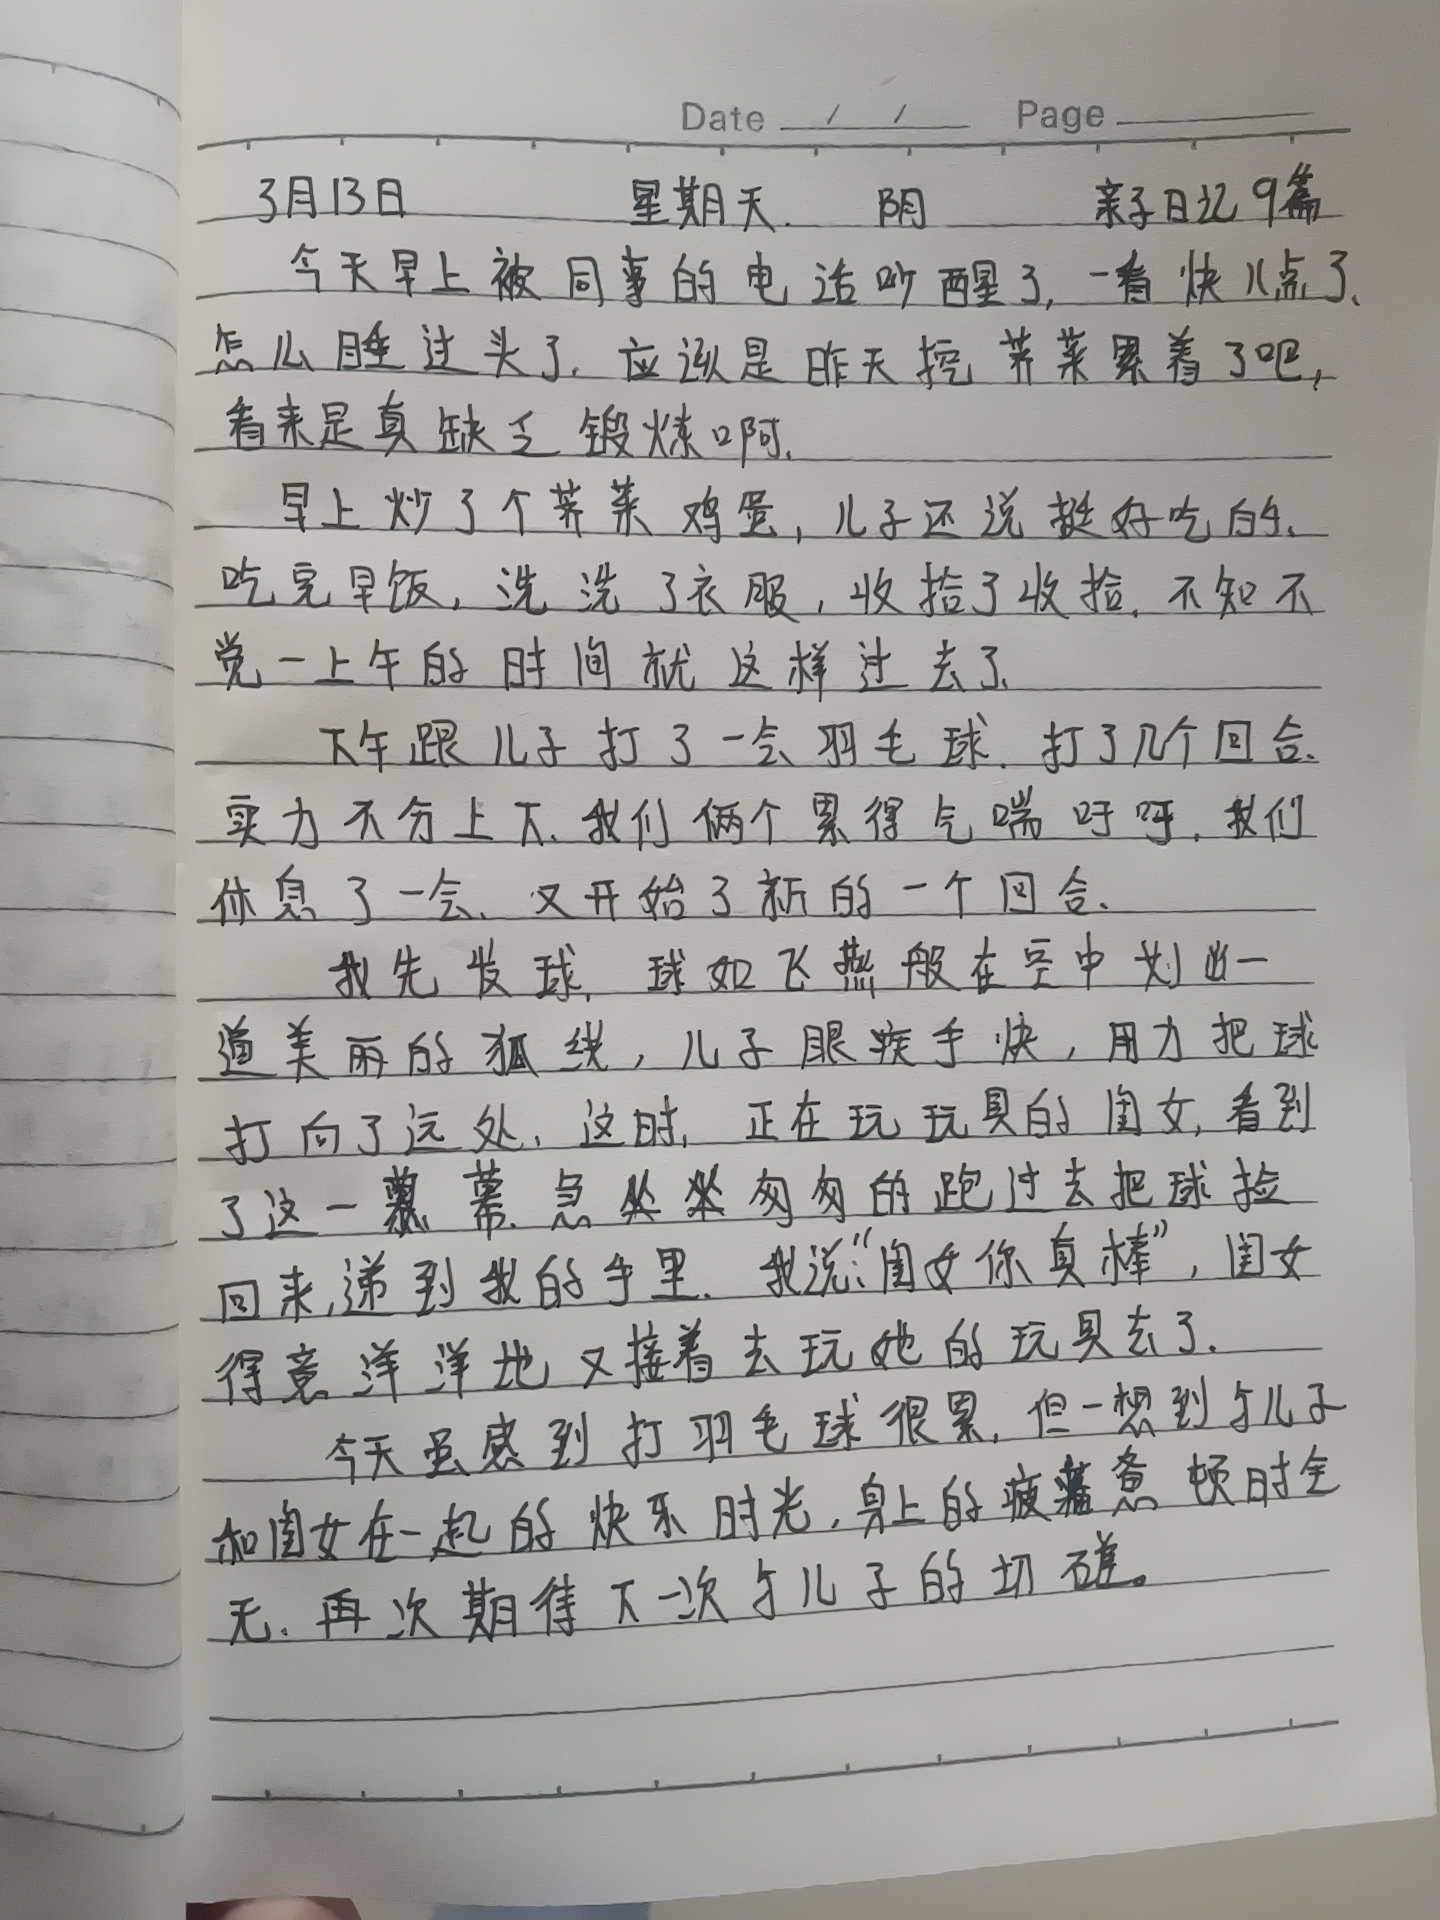 Date / / Page
3月13日 星期天. 阴 亲子日记9篇
今天早上被同事的电话吵醒了,一看快八点了、
怎么睡过头了.应该是昨天挖荠菜累着了吧,
看来是真缺乏锻炼啊.
早上炒了个荠菜鸡蛋,儿子还说挺好吃的.
吃完早饭,洗洗了衣服,收拾了收拾.不知不
觉一上午的时间就这样过去了.
下午跟儿子打了一会羽毛球.打了几个回合.
实力不分上下.我们俩个累得气喘吁吁.我们
休息了一会、又开始了新的一个回合.
我先发球,球如飞燕般在空中划出一
道美丽的狐线,儿子眼疾手快,用力把球
打向了远处.这时,正在玩玩具的闺女,看到
了这一幕.急匆匆的跑过去把球捡
回来,递到我的手里.我说:“闺女你真棒”,闺女
得意洋洋地又接着去玩她的玩具去了.
今天虽感到打羽毛球很累,但一想到与儿子
和闺女在一起的快乐时光,身上的疲惫顿时全
无.再次期待下一次与儿子的切磋。